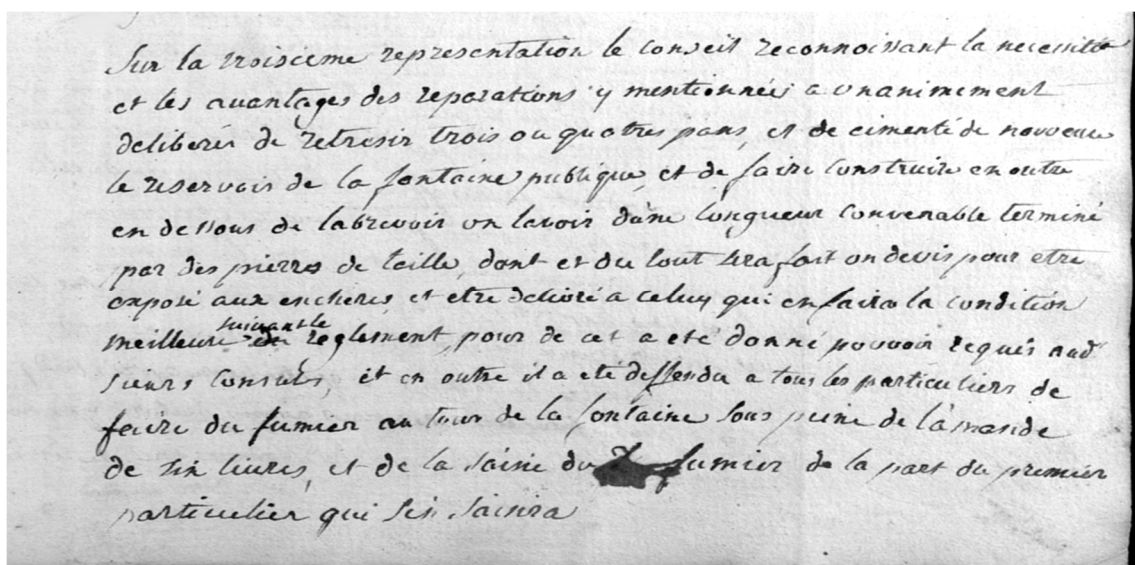 Sur la troisieme representation le conseil reconnoissant la necessité
et les avantages des reparations y mentionnées a unanimement
deliberés de retresir trois ou quatres pans, et de cimenté de nouveau
le reservoir de la fontaine publique, et de faire construire en outre
en dessous de labrevoir un lavoir dune longueur convenable terminé
par des pierres de taille, dont et du tout sera fait un devis pour etre
exposé aux encheres, et etre delivré a celuy qui en faira la condition
meilleure suivant le reglement, pour de cet a eté donné pouvoir requis aud
sieurs consuls, et en outre il a eté deffendu a tous les particuliers de
feire du fumier au tour de la fontaine sous peine de lamande
de six livres, et de la saisie du fumier de la part du premier
particulier qui sen saisira